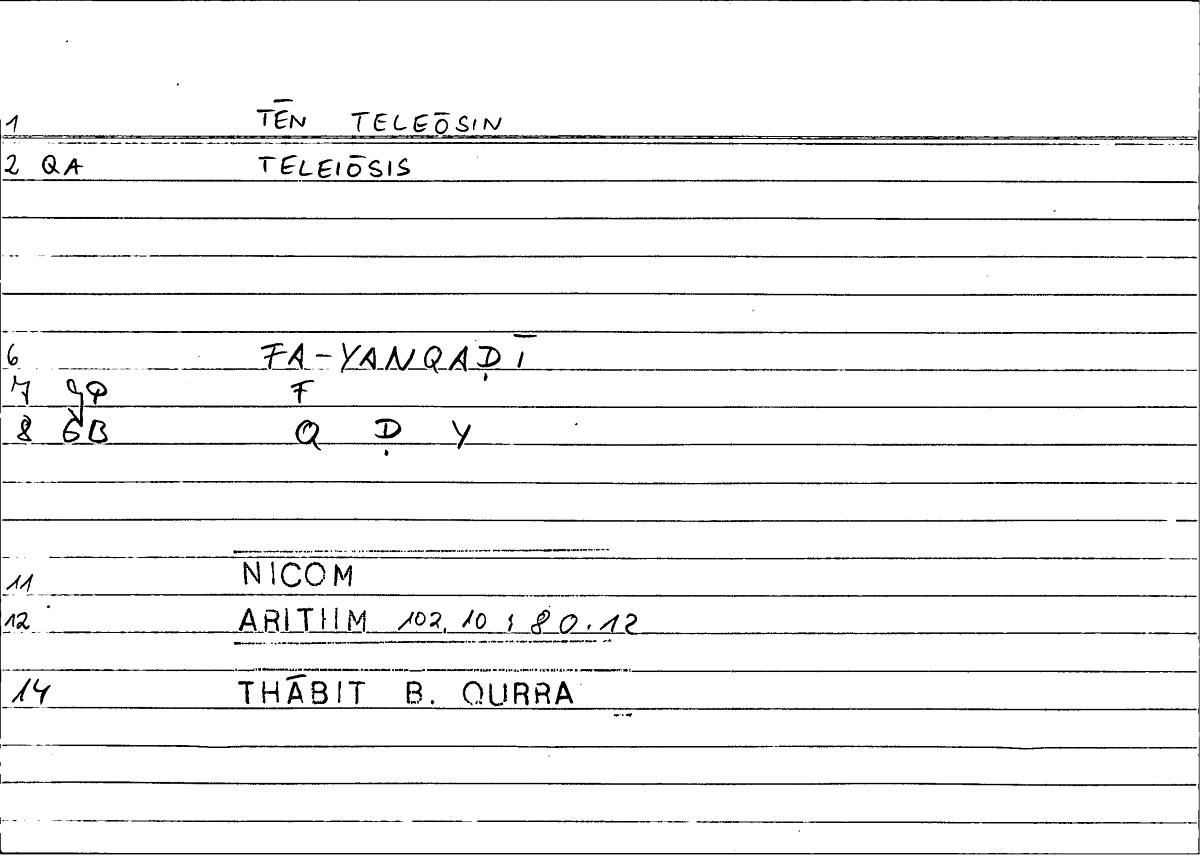 1 TĒN TELEŌSIN
2 QA TELEIŌSIS
6 FA-YANQAḌĪ
7 gP F
8 GB Q Ḍ Y
11 NICOM
12 ARITHM 102,10 ; 80.12
14 THĀBIT B. QURRA